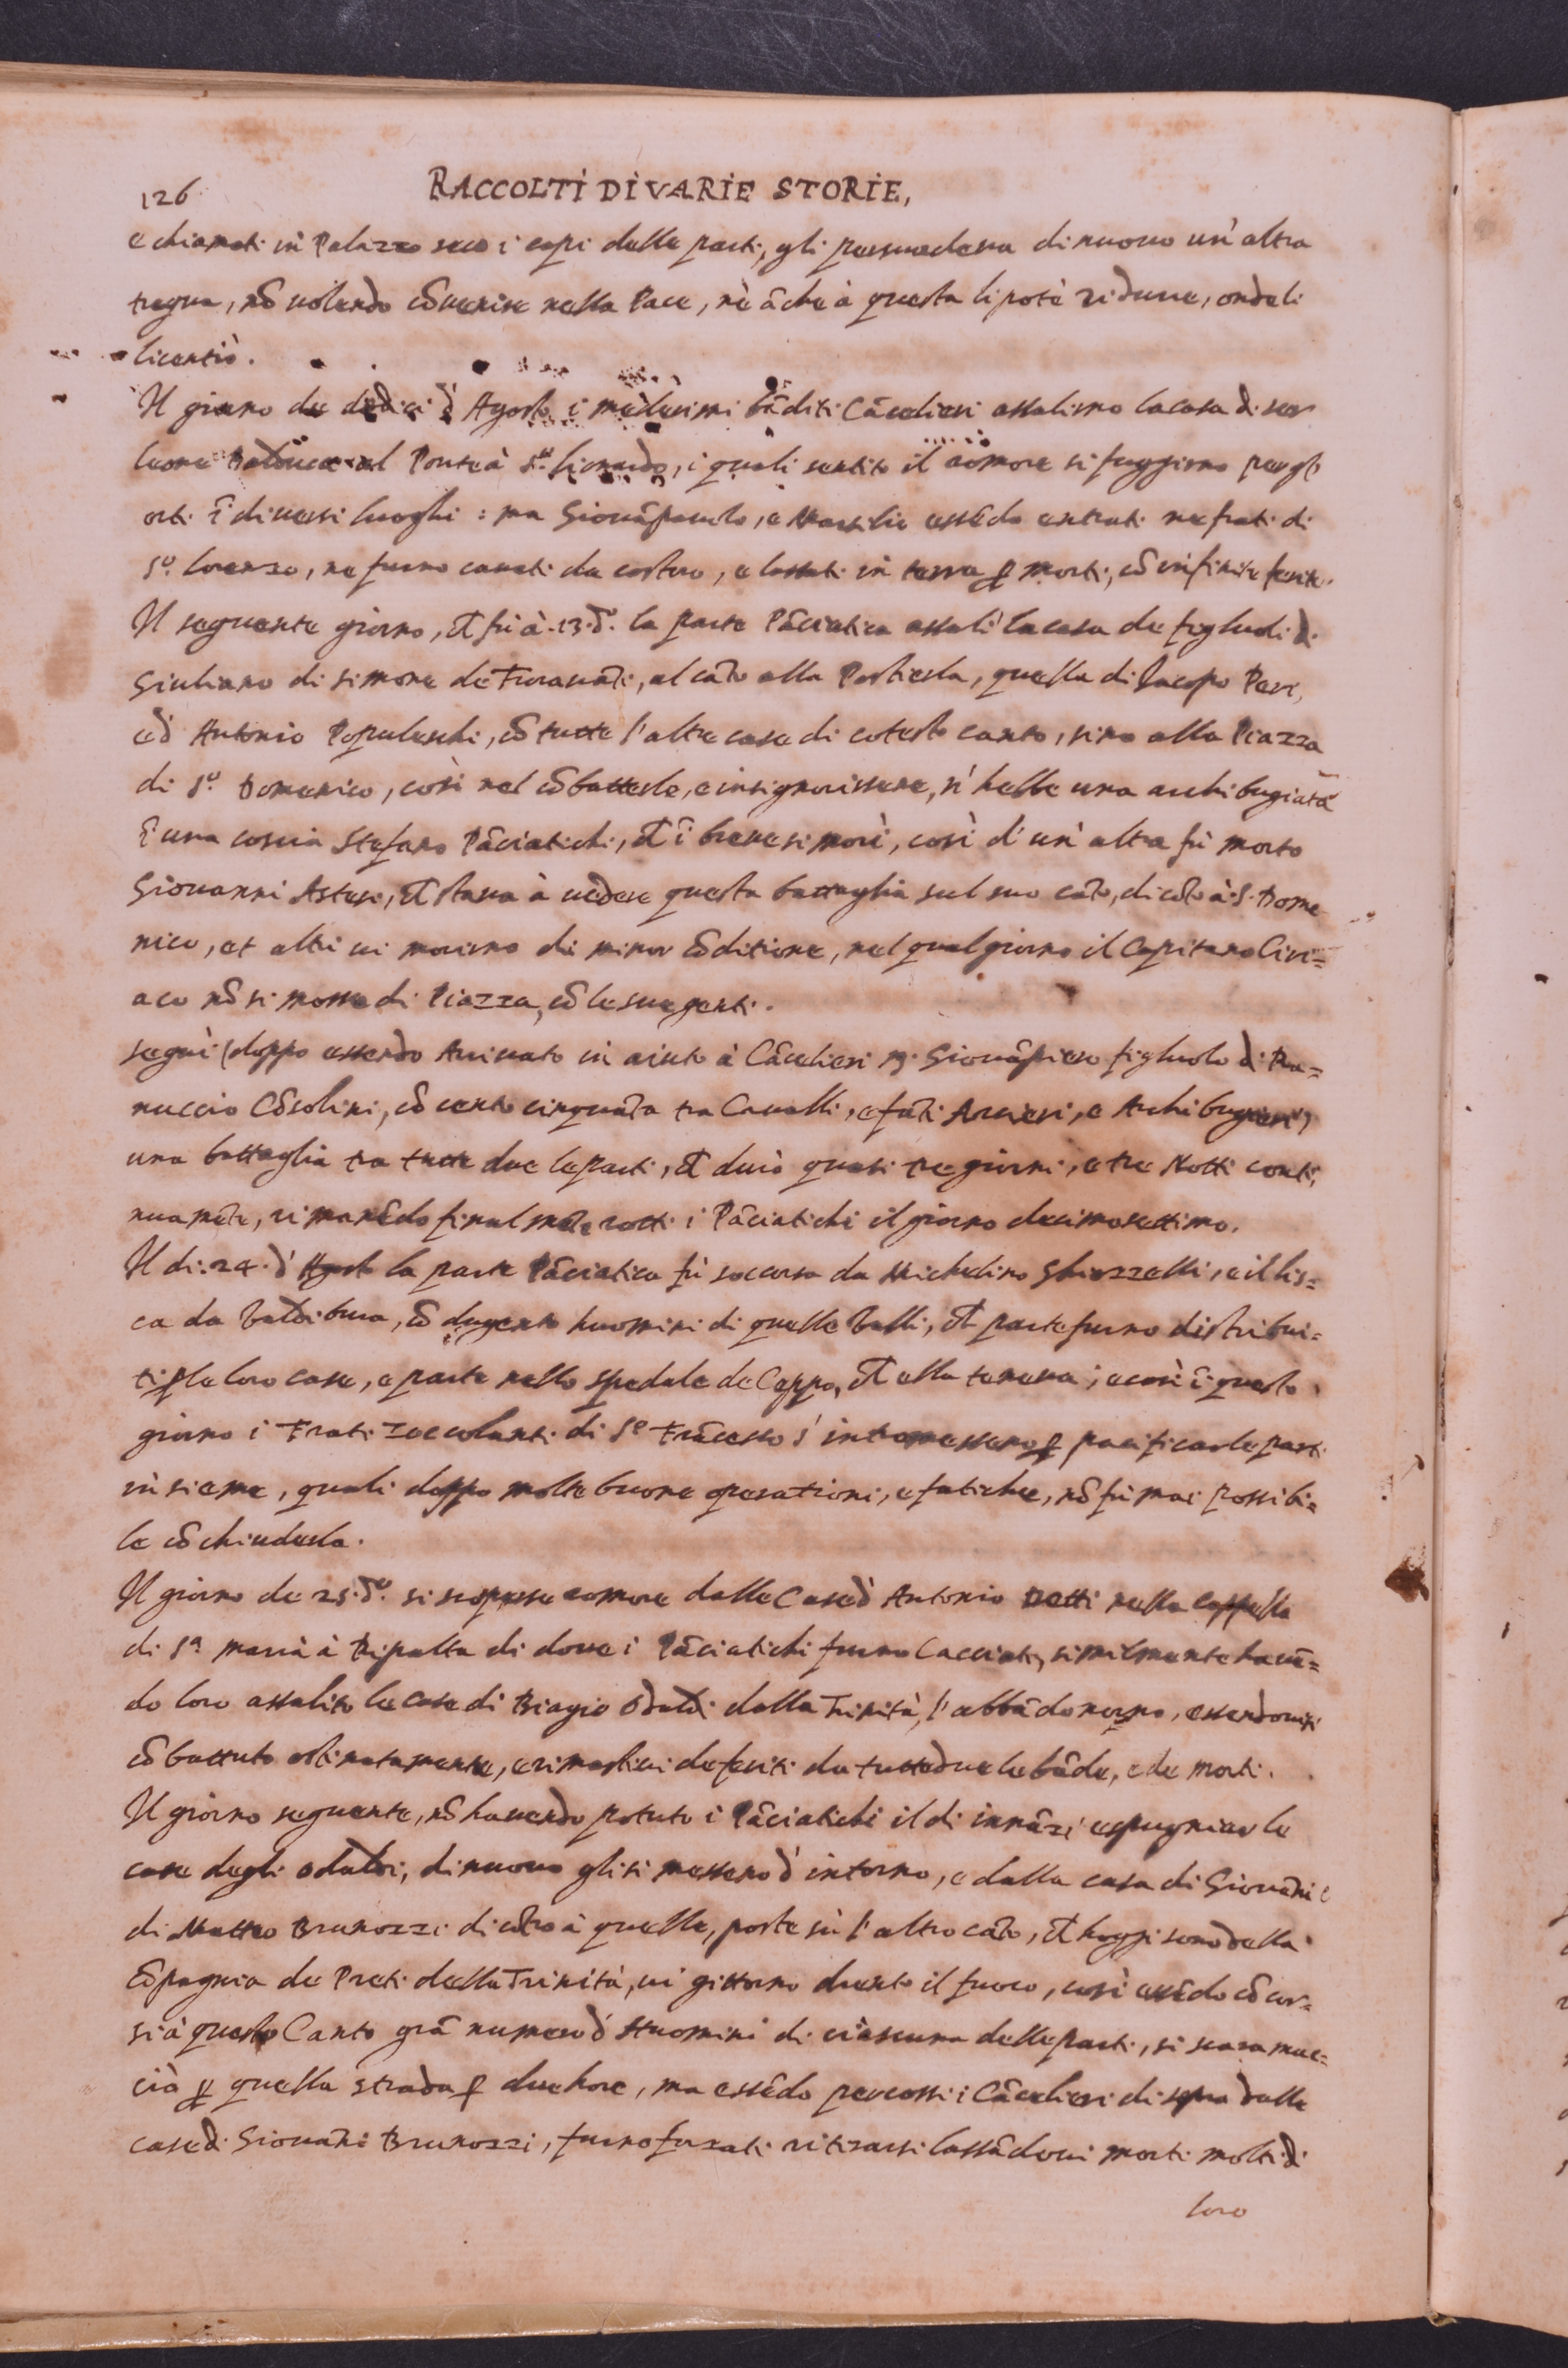 126
RACCOLTI DI VARIE STORIE,
e chiamati in Palazzo seco i capi delle parti, gli persuadeva di nuovo un'altra
tregua, nõ uolendo cõuenire nella Pace, nè ãche à questa li potè ridurre, onde li
licentiò.
Il giorno de dodici d'Agosto i medesimi bãditi Cãcelieri assalirno la casa di ser
Leone al Ponte à Sto. Lionardo, i quali sentito il romore si fuggirno per gl'
orti ĩ diuersi luoghi: ma Giouãpaulo, e Marsilio essẽdo entrati ne frati di
So. Lorenzo, ne furno cauati da costoro, e lassati in terra ꝑ morti, cõ infinite ferite.
Il seguente giorno, ch̃ fù à. 13. do. la parte Pãciatica assalì la casa de figluoli di
Giuliano di Simone de Fioravãti, al cãto alla Porticula, quella di Jacopo Peri,
e d'Antonio Popoleschi, cõ tutte l'altre case di cotesto canto, sino alla Piazza
di So. Domenico, così nel cõbatterle, e insignorirsene, n'hebbe una archibugiata
ĩ una coscia Stefano Pãciatichi, ch̃ ĩ breue si morì, così d'un'altra fù morto
Giouanni Astesi, ch̃ staua à uedere questa battaglia sul suo cãto, di cõtro à S. Dome
nico, et altri ui morirno di minor cõditione, nel qual giorno il Capitano Ciri=
aco nõ si mosse di Piazza, cõ le sue genti.
Seguì (doppo essendo Arriuato in aiuto à Cãcelieri M. Giouãpiero figluolo di Ra=
nuccio Cõsolini, cõ cento cinquãta tra Caualli, e fãti Arcieri, e Archibugieri)
una battaglia tra tutte due le parti, ch̃ durò quasi tre giorni, e tre Notti conti,
nuamẽte, rimanẽdo finalmẽte rotti i Pãciatichi il giorno decimosettimo.
Il di. 24. d'Agosto la parte Pãciatica fù soccorsa da Michelino Ghiozzelli, e il Lis=
ca da Valdibura, cõ dugento huomini di quelle Valli, ch̃ parte furno distribui=
ti ꝑ le loro case, e parte nello spedale del Ceppo, ch̃ ella teneua; e così ĩ questo
giorno i Frati Zoccolanti di So Frãcesco s'intromessero ꝑ pacificar le parti
insieme, quali doppo molte buone operationi, e fatiche, nõ fù mai possibi=
le cõchiuderla.
Il giorno de 25. do. si scoperse romore dalle Case d'Antonio Detti nella Cappella
di Sa. Maria à Ripalta di doue i Pãciatichi furno Cacciati, similmente hauẽ=
do loro assalito le Case di Biagio Odaldi dalla Trinità, l'abbãdonorno, essendouisi
cõbattuto ostinatamente, e rimastiui de feriti da tutte due le bãde, e de morti.
Il giorno seguente, nõ hauendo potuto i Pãciatichi il di innãzi espugniar le
case degli Odaldi, di nuouo gli si messero d'intorno, e dalla casa di Giouãni
di Matteo Brunozzi di cõtro à quelle, poste sù l'altro cãto, ch̃ hoggi sono della
Cõpagnia de Preti della Trinità, ui gittorno drento il fuoco, così essẽdo cõcor=
si à questo Canto grã numero d'Huomini di ciascuna delle parti, si scaramuc=
ciò ꝑ quella strada ꝑ due hore, ma essẽdo percossi i Cãcelieri di sopra dalle
case di Giouãni Brunozzi, furno forzati ritirarsi lassãdoui morti molti di
loro